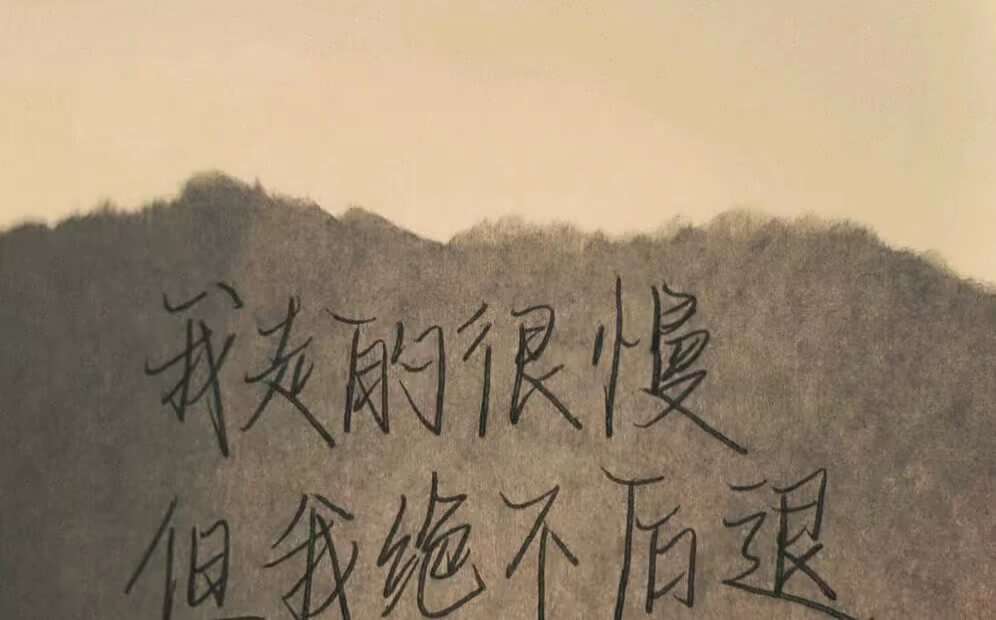 我走的很慢
但我绝不后退